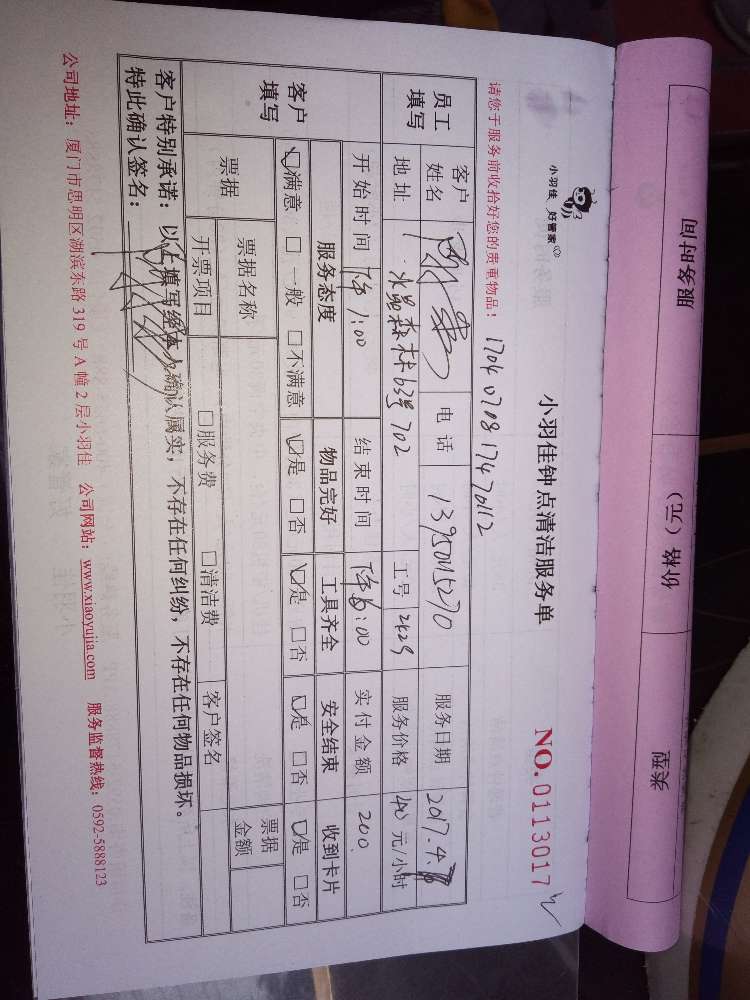 服务时间 价格（元） 类型
小羽佳 好管家
小羽佳钟点清洁服务单
NO. 0113017
请您于服务前收拾好您的贵重物品！ 1704070817470112
员工填写 客户姓名 电话 13950015270 服务日期 2017.4.
地址 水晶森林63号702 工号 2K29 服务价格 40 元/小时
客户填写 开始时间 下午 1:00 结束时间 下午6:00 实付金额 200
服务态度 物品完好 工具齐全 安全结束 收到卡片
☑满意 □一般 □不满意 ☑是 □否 ☑是 □否 ☑是 □否 ☑是 □否
票据 票据名称 票据金额
开票项目 □服务费 □清洁费 客户签名
客户特别承诺：以上填写经本人确认属实，不存在任何纠纷，不存在任何物品损坏。
特此确认签名：
公司地址：厦门市思明区湖滨东路 319 号 A 幢 2 层小羽佳 公司网站：www.xiaoyujia.com 服务监督热线：0592-5888123